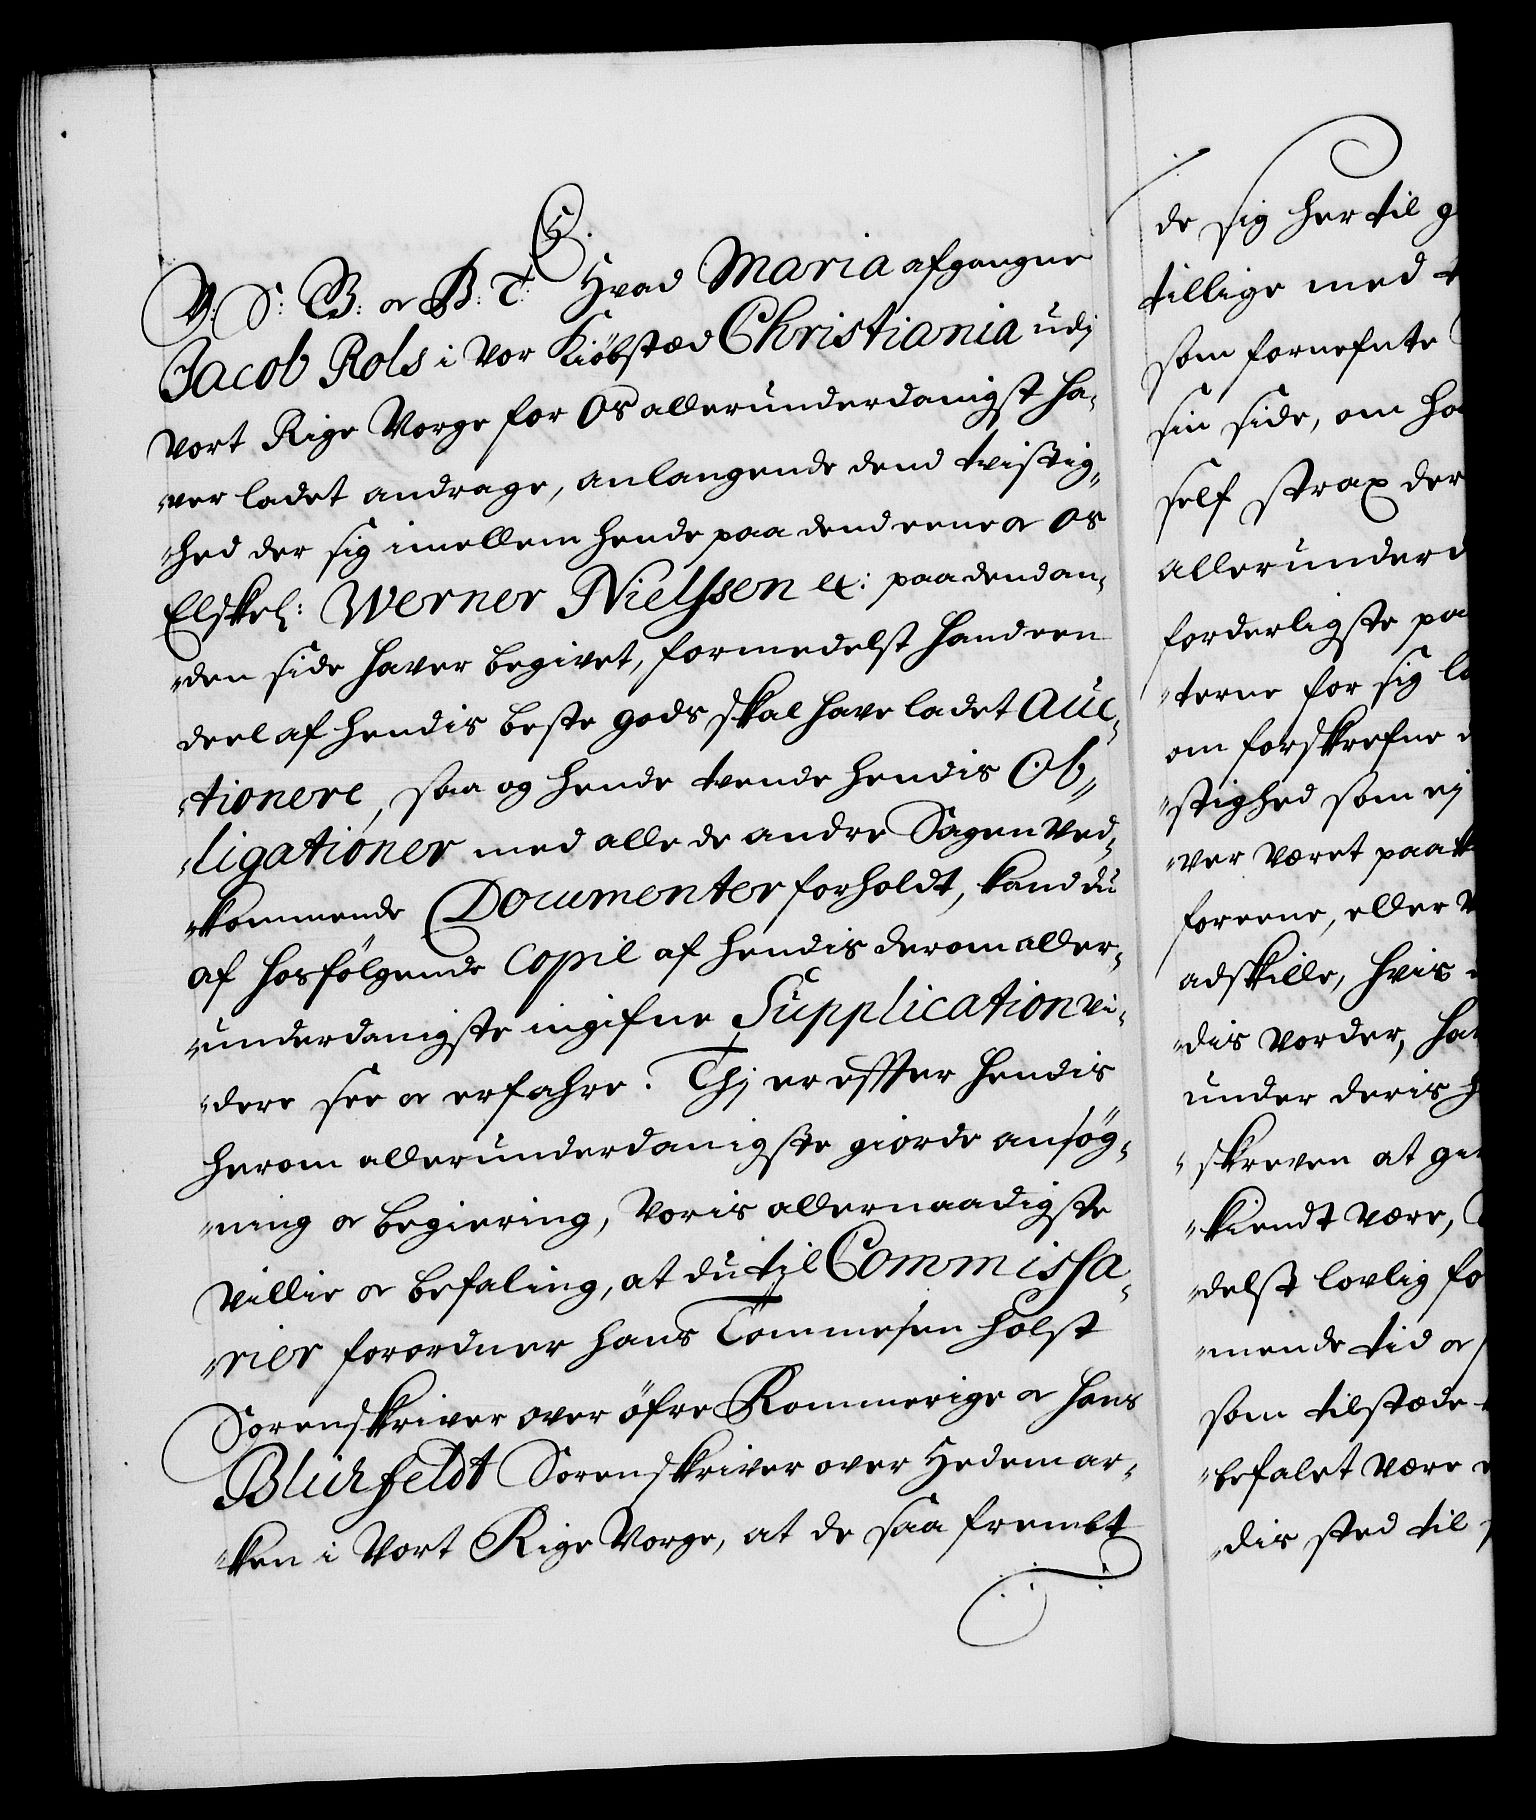 V. S: B: or B: T: Hvad Maria afgangne
Jacob Rols i vor Kiöbstæd Christiania udj
vort Rige Norge for Os allerunderdanigst ha-
ver ladet andrage, anlangende dend tvistig-
hed der sig imellem hende paa dend eene oc Os
Elskel: Werner Nielssen etc: paa dend an-
den side haver begivet, formedelst hand een
deel af hendis beste gods skal have ladet Auc-
tionere, saa og hende tvende hendis Ob-
ligationer med alle de andre Sagen ved-
kommende Documenter forholdt, kand du
af hosfölgende Copie af hendis derom aller-
underdanigste ingifne Supplication vi-
dere see oc erfahre. Thj er effter hendis
herom allerunderdanigste giorde ansög-
ning oc begiering, voris allernaadigste
villie oc befaling, at du til Commissa-
rier forordner Hans Tommesen Holst
Sorenskriver over öfre Rommerige oc Hans
Blichfeldt Sorenskriver over Hedemar-
ken i vort Rige Norge, at de saa frembt
de sig her til
tillige med
som fornefnte
sin side, om
self strax der
allerunderd
forderligste paa
terne for sig
om forskrefne
stighed som ej
ver været paa
foreene, eller
adskille, hvis
dis vorder,
under deris
skreven at
kiendt være,
delst lovlig
mende tid oc
som tilstæde
befalet være
dis sted til